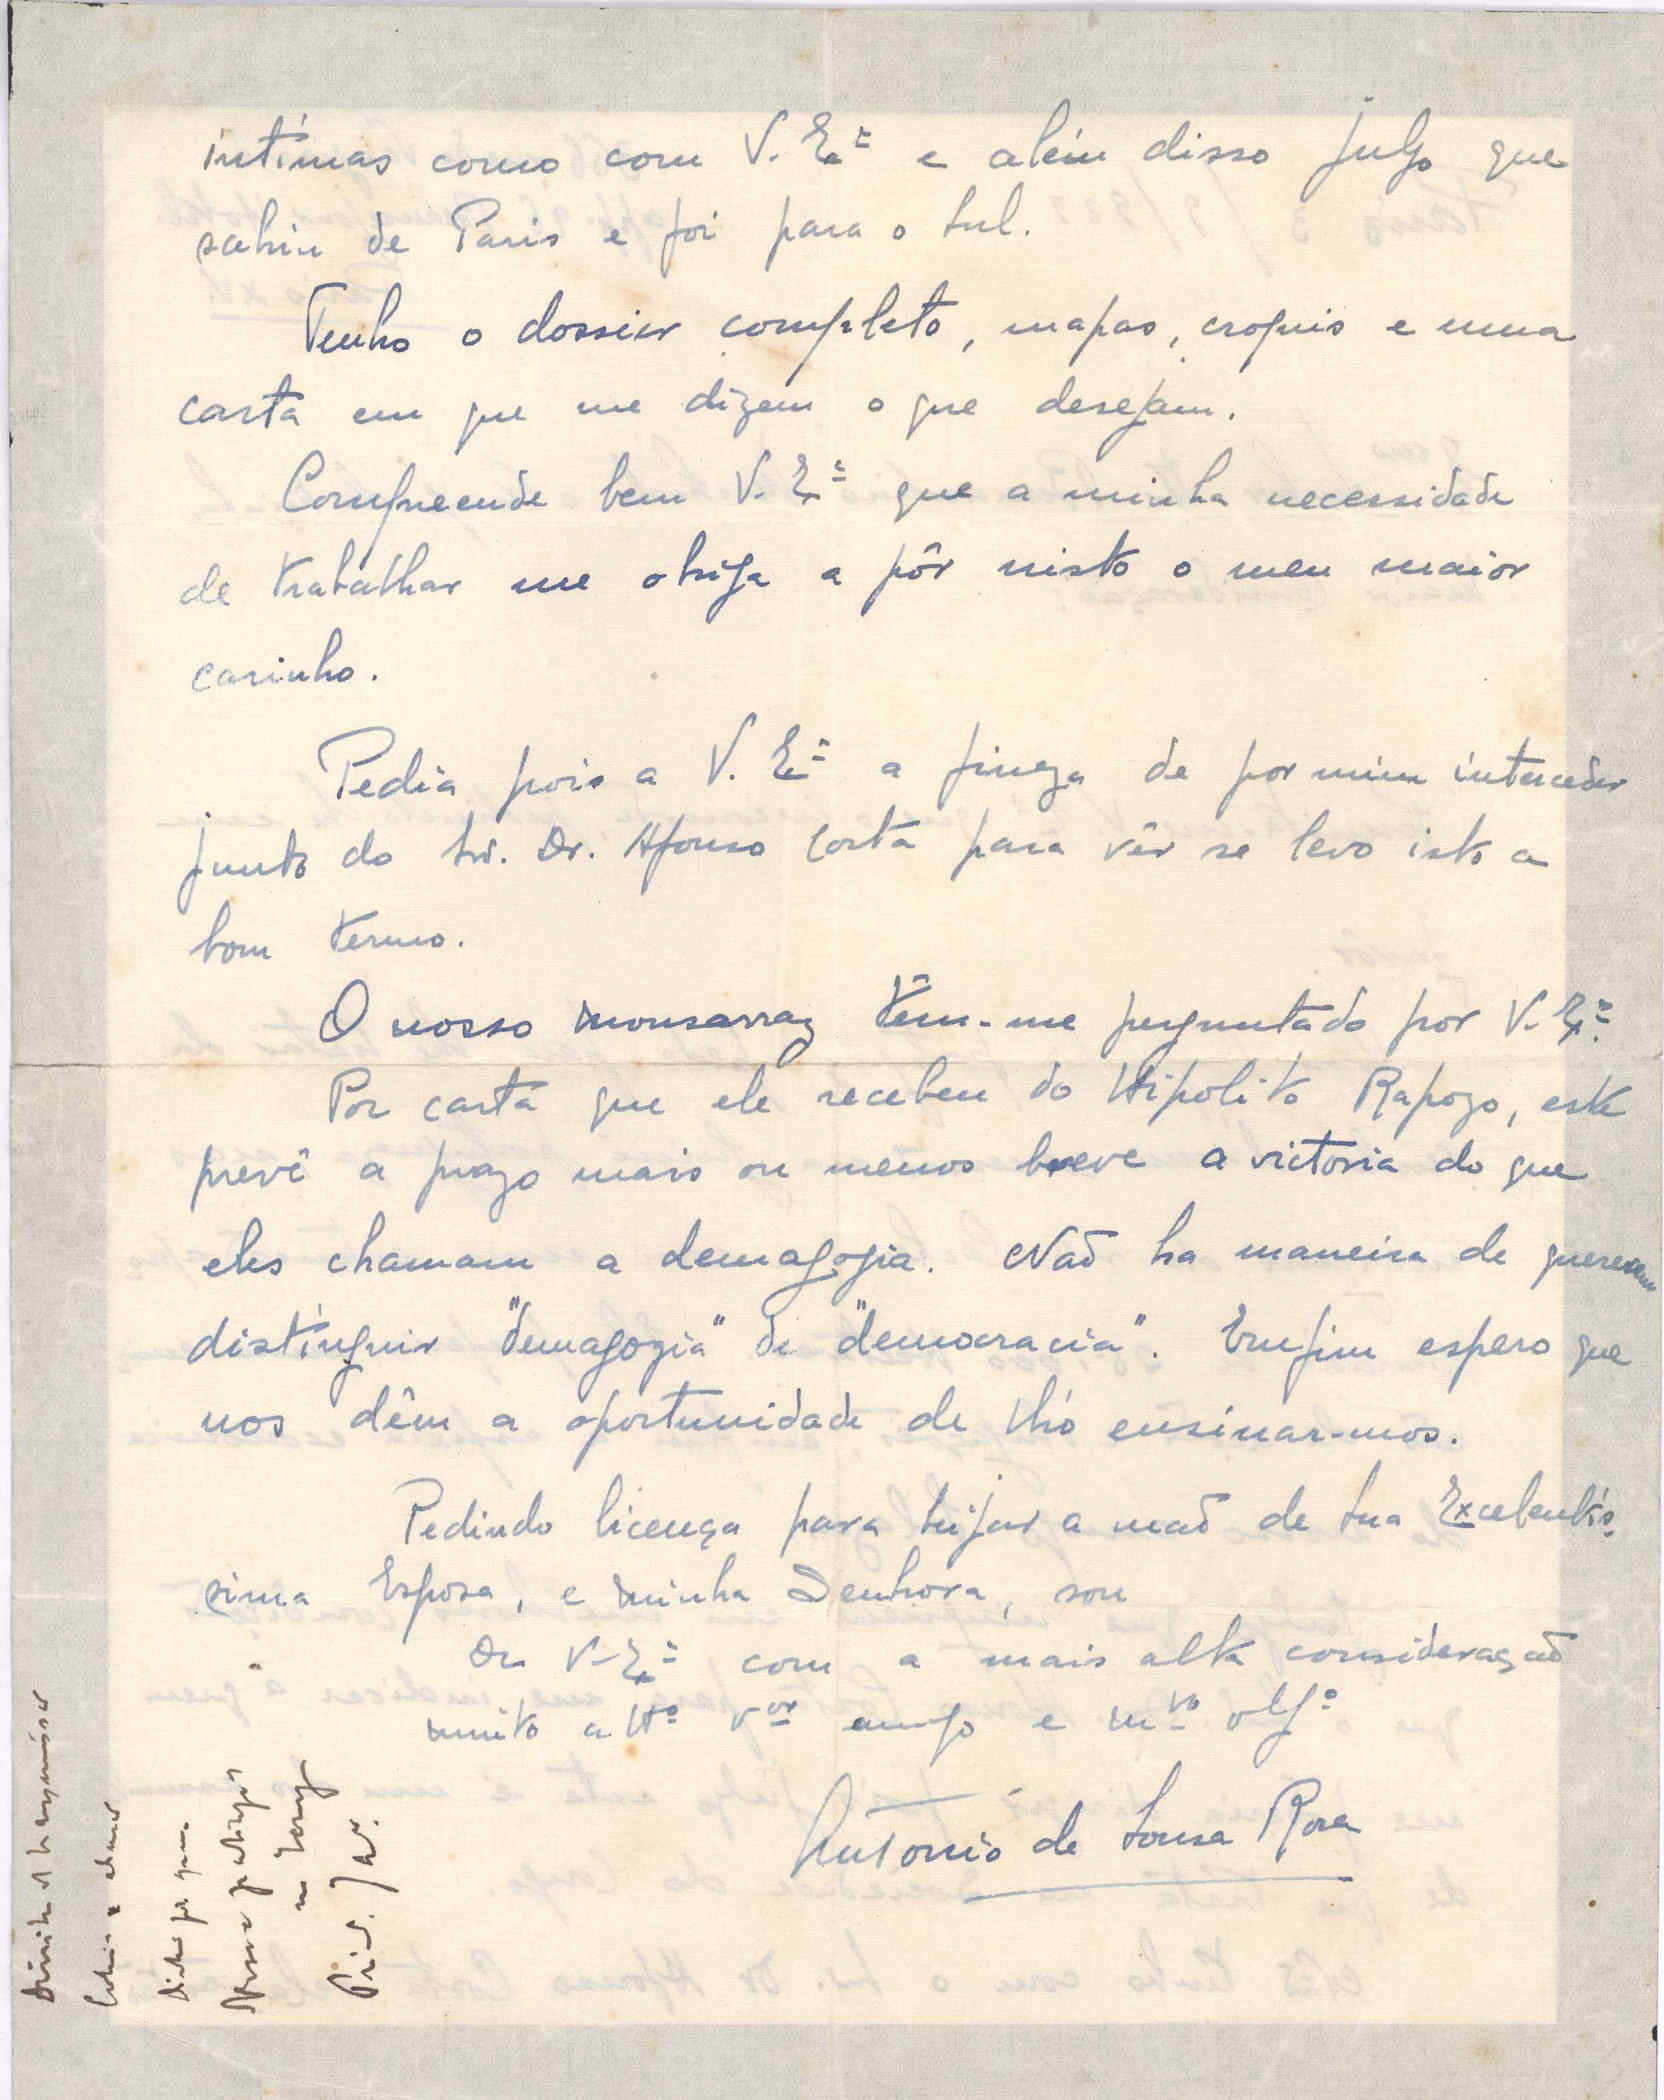 intimas como com V. Exª e além disso julgo que
sahiu de Paris e foi para o Sul.
Tenho o dossier completo, mapas, croquis e uma
carta em que me dizem o que desejam.
Compreende bem V. Exª que a minha necessidade
de trabalhar me obriga a pôr nisto o meu maior
carinho.
Pedia pois a V. Exª a fineza de por mim interceder
junto do Snr. Dr. Afonso Costa para vêr se levo isto a
bom termo.
O nosso Monsarraz têm-me perguntado por V. Exª
Por carta que ele recebeu do Hipolito Rapozo, este
prevê a prazo mais ou menos breve a victoria do que
eles chamam a demagogia. Naõ ha maneira de quererem
distinguir "demagogia" de "democracia". Emfim espero que
nos dêm a oportunidade de lhó ensinar-mos.
Pedindo licença para beijar a maõ de Sua Excelentis-
sima Esposa, e minha Senhora, sou
De V. Exª com a mais alta consideraçaõ
muito attº vor amigo e mto obgº
Antonio de Sousa Rosa